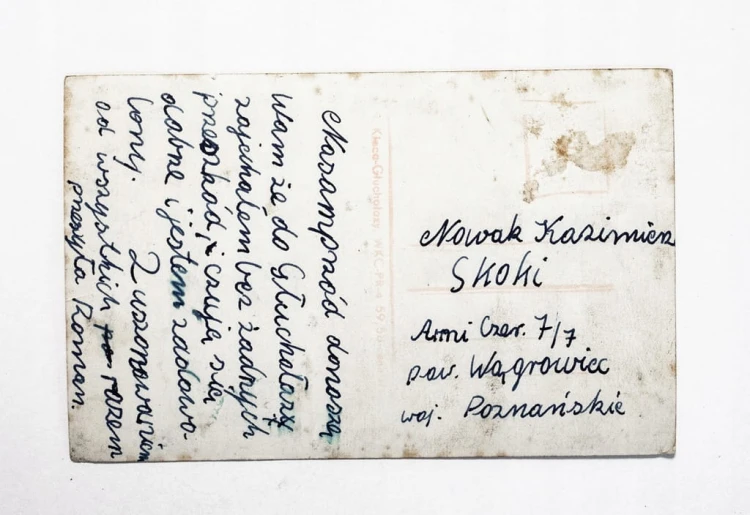 Nasamprzód donoszę
Wam że do Głuchołazy
zajechałem bez żadnych
przeszkód, i czuję się
dabne i jestem zadowo-
lony.
Z uszonowaniem
od wszystkich razem
przesyła Roman.
Nowak Kazimierz
Skoki
Armi Czer. 7/7
pow. Wągrowiec
woj. Poznańskie